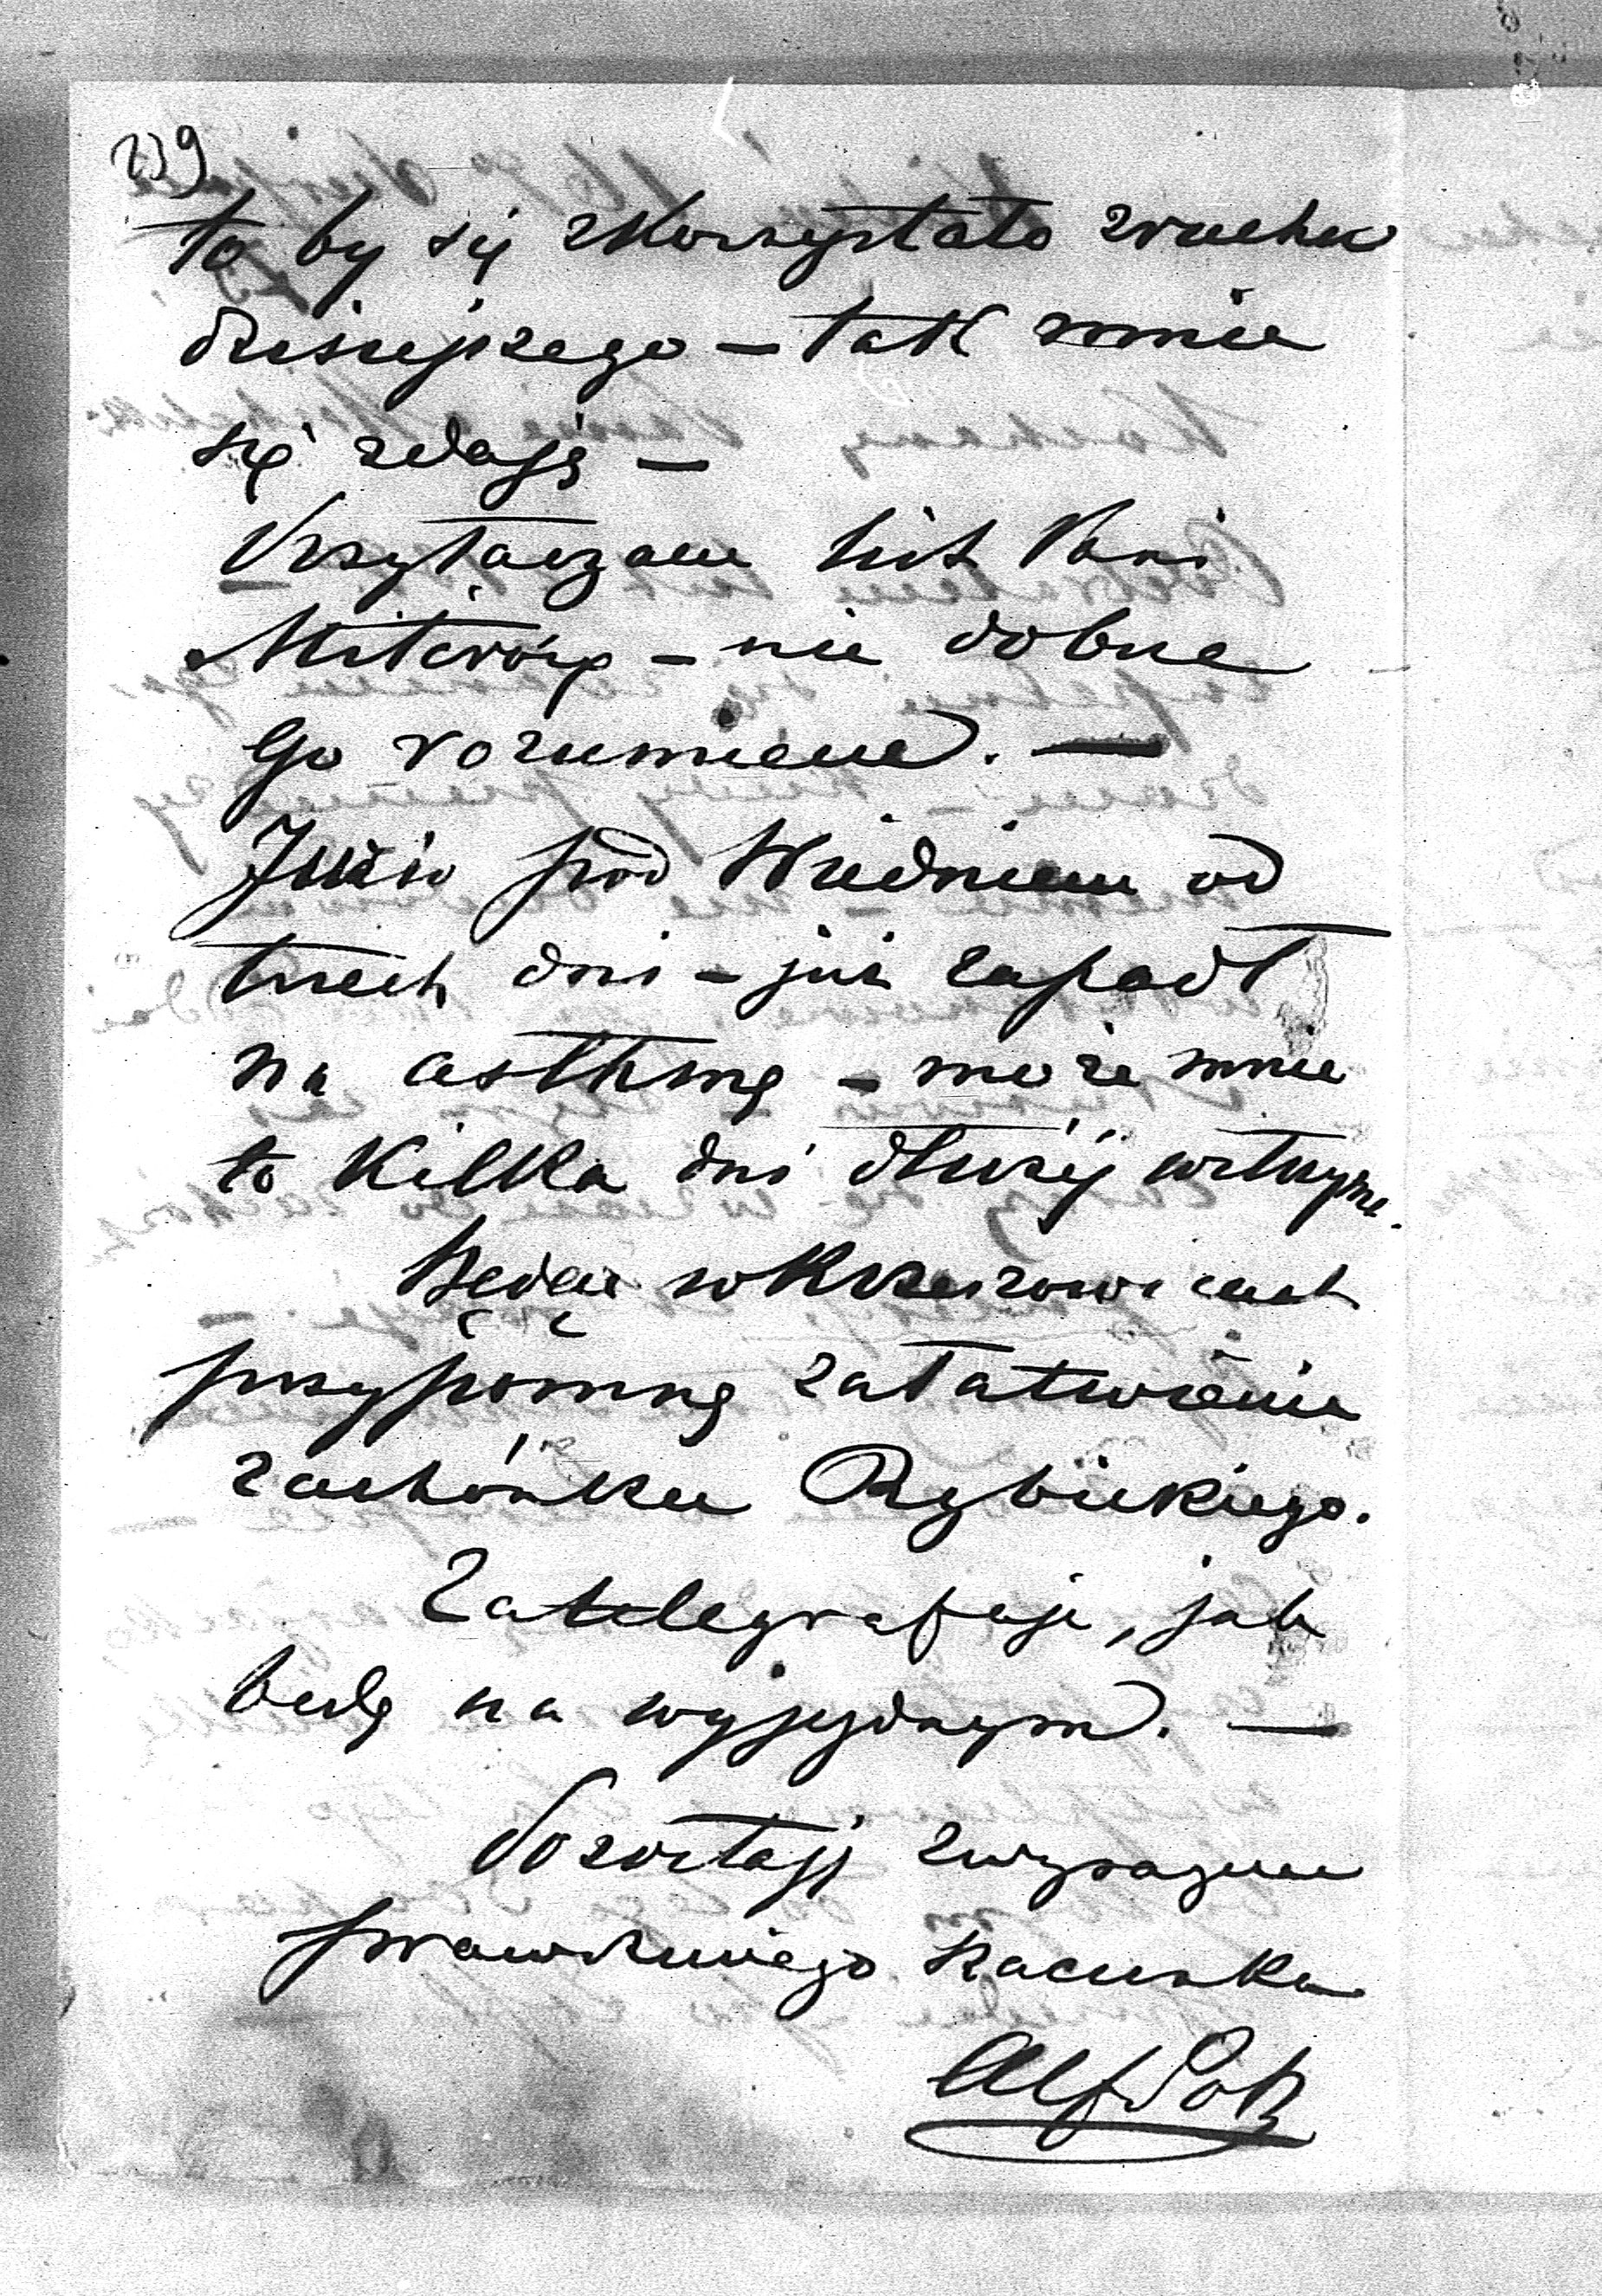 239
to by się skorzystało z ruchu
dzisiejszego – tak mnie
się zdaję –
Przyłączam list Pani
– nie dobrze
go rozumiem. –
Józio pod Wiedniem od
trzech dni – już zapadł
na asthmę – może mnie
to kilka dni dłużéj wstrzyma.
Będąc w Krzeszowicach
przypomnę załatwienie
rachónku Rybickiego.
Zatelegrafuję, jak
będę na wyjezdnym. –
Pozostaję z wyrazem
prawdziwego szacunku
Alf Pot